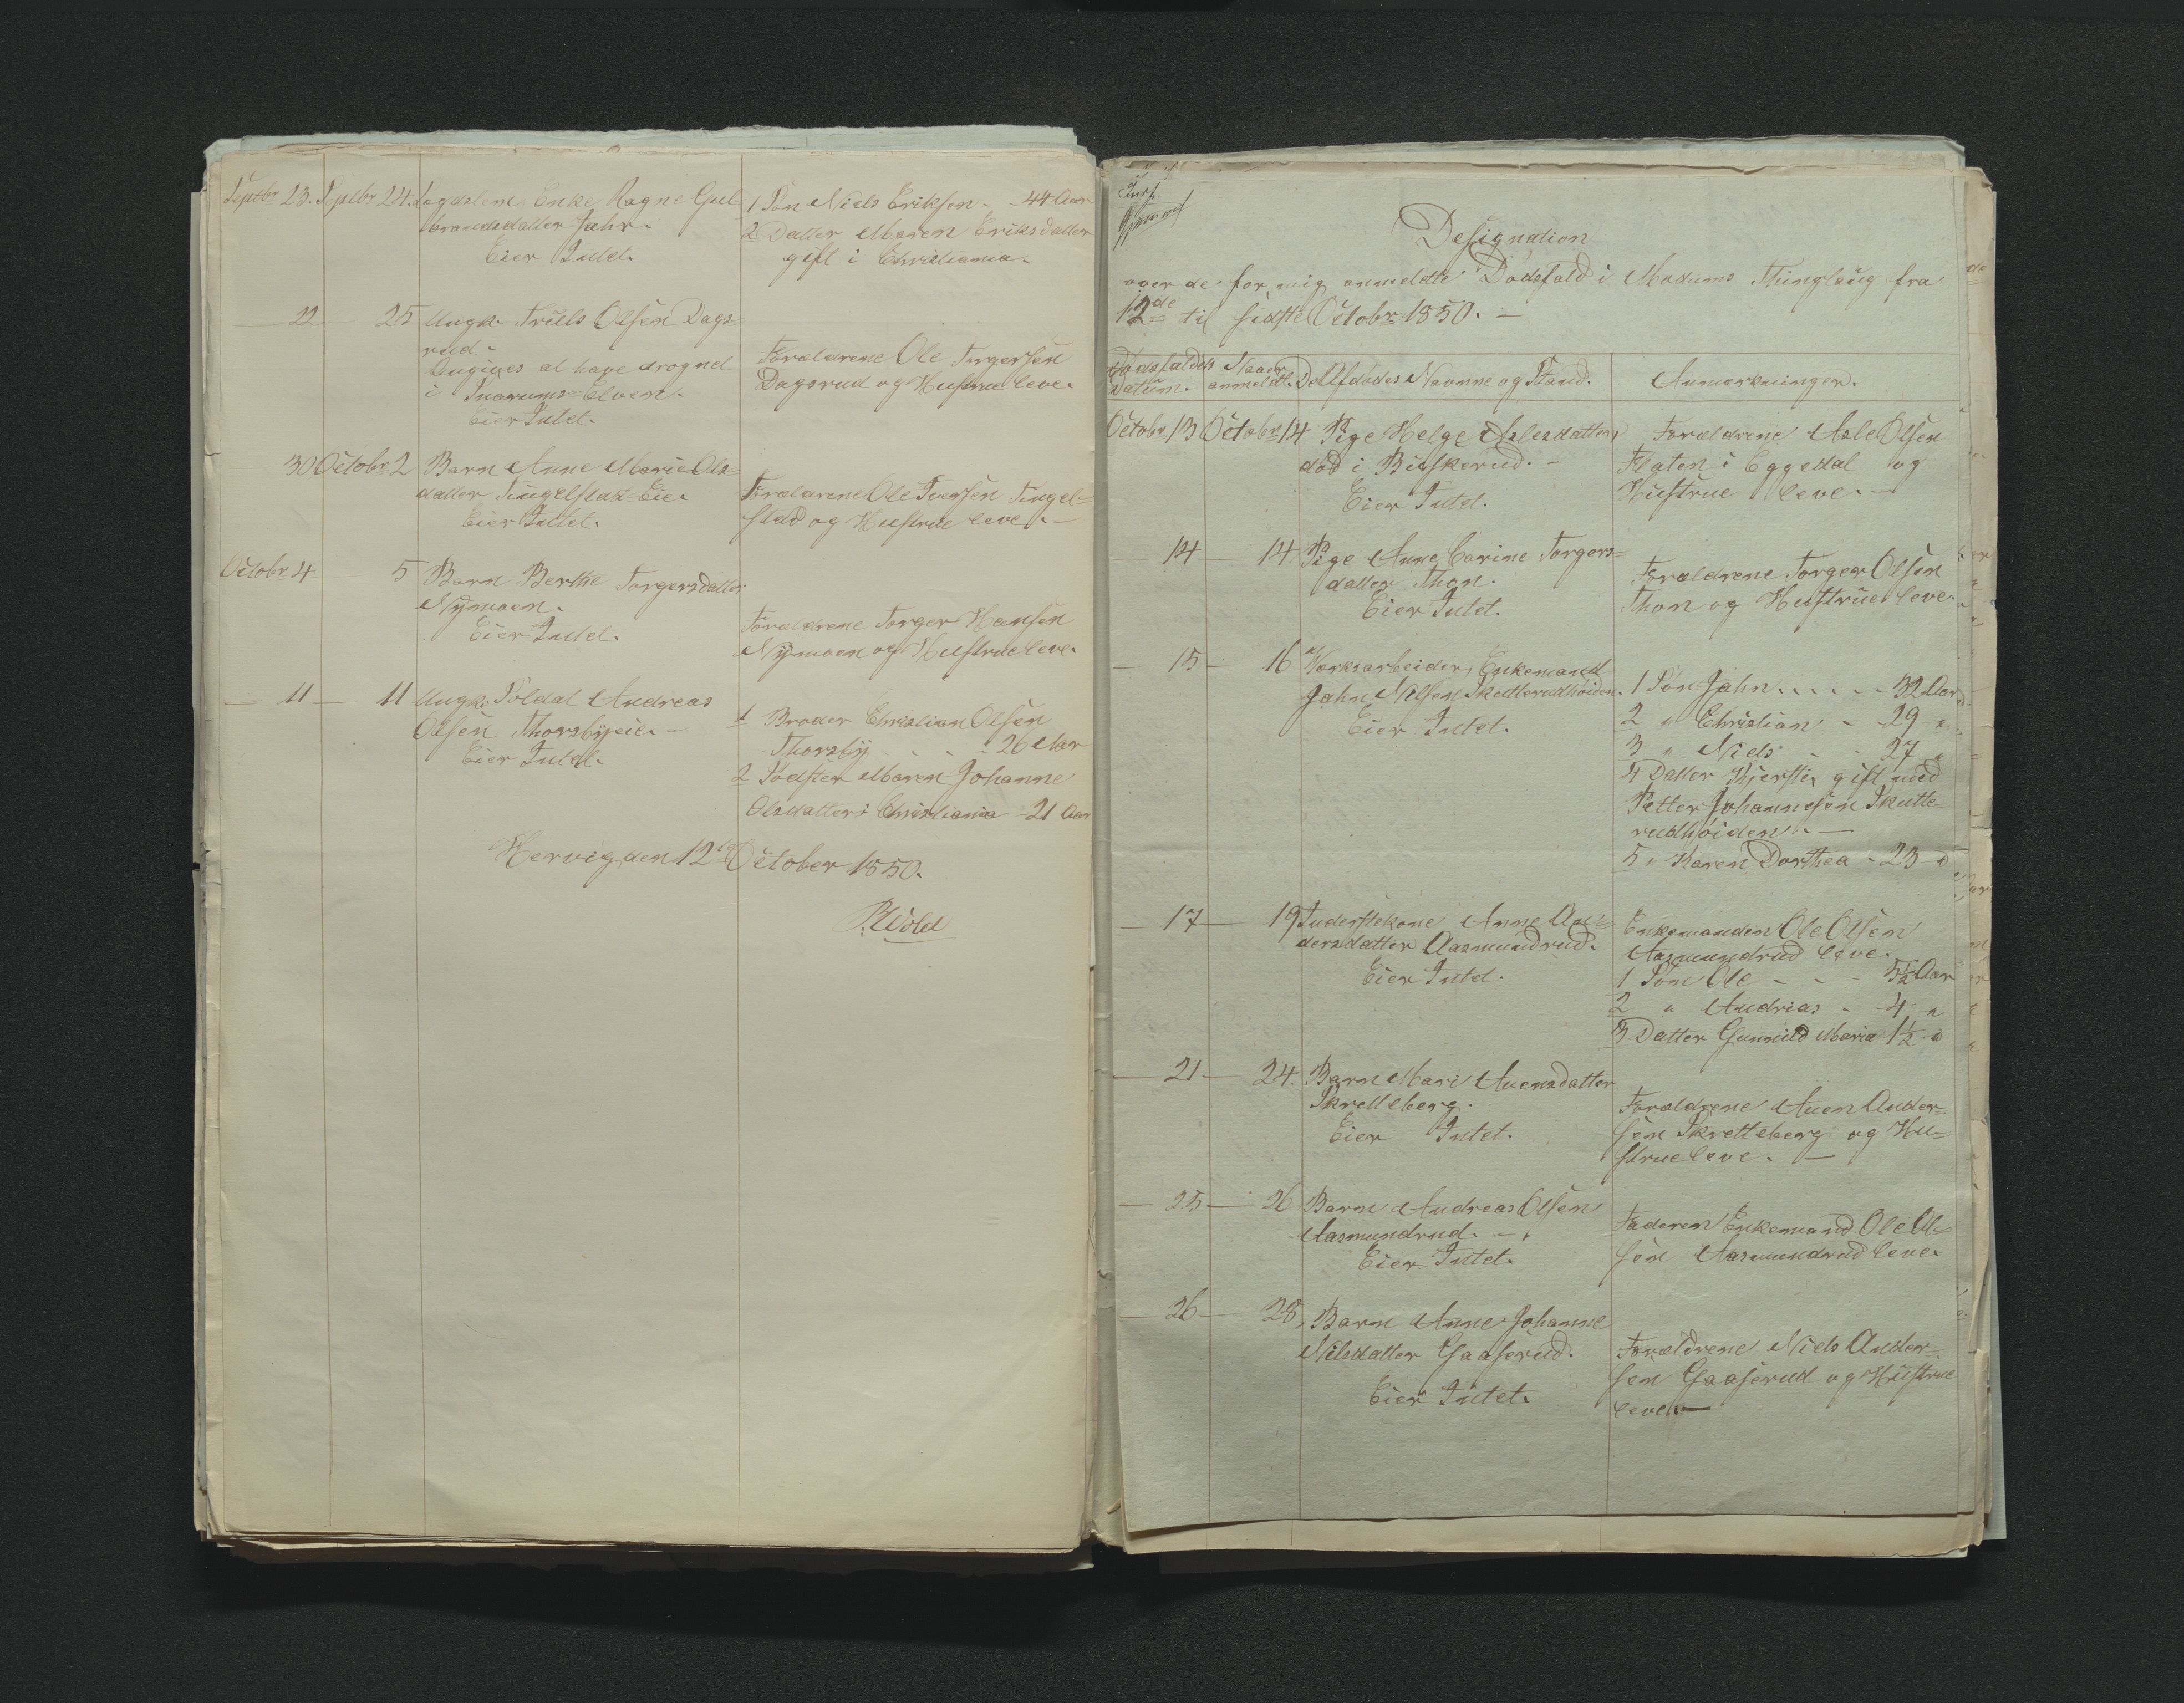 Septbr 23. Septbr 24. Logdslem Enke Ragne Gul-
brandsdatter Jahr.
Eier Intet.
1 Søn Niels Eriksen - - 44 Aar
2 Datter Maren Eriksdatter
gift i Christiania.
22 — 25 Ungk. Truls Olsen Dags-
rud.
Angives at have drognet
i Snarums-Elven.
Eier Intet.
Forældrene Ole Torgersen
Dagsrud og Hustrue leve.
— 30 Octobr 2 Barn Anne Marie Ols-
datter Tingelstad-Eie.
Eier Intet.
Forældrene Ole Iversen Tingel-
stad og Hustrue leve. —
Octobr 4. — 5 Barn Berthe Torgersdatter
Nÿmoen.
Eier Intet.
Forældrene Torger Hansen
Nÿmoen og Hustrue leve.
— 11 — 11 Ungk. Soldat Andreas
Olsen Thorsbÿeie. —
Eier Intet.
1 Broder Christian Olsen
Thorsbÿ - - - 26 Aar
2 Sødster Maren Johanne
Olsdatter i Christiania - 21 Aar
Hervig den 12te October 1850.
P. Wold
Designation
over de for mig anmeldte Dødsfald i Modums Thinglaug fra
12de til sidste Octobr 1850. —
Dødsfaldets Datum.
Naar anmeldt.
De Afdødes Navnne og Stand.
Anmærkninger.
Octobr 13 Octobr 14 Pige Helge Aslesdatter,
død i Buskerud. —
Eier Intet.
Forældrene Asle Olsen
Flaten i Eggedal og
Hustrue leve. —
— 14 — 14 Pige Anne Carine Torgers-
datter Thon.
Eier Intet.
Forældrene Torger Olsen
Thon og Hustrue leve.
— 15 — 16 Værksarbeider, Enkemand
Jahn Nilsen Skutterudhøiden.
Eier Intet.
1 Søn Jahn . . . . - 32 Aar
2 " Christian - 29 "
3 " Niels - - 27 "
4 Datter Kjersti, gift med
Petter Johannesen Skutte-
rudhøiden. —
5 " Karen Dorthea - 23 "
— 17 — 19 Inderstekone Anne An-
dersdatter Aasmundrud.
Eier Intet.
Enkemanden Ole Olsen
Aasmundrud leve.
1 Søn Ole - - - 5½ Aar
2 " Andrias - - 4 "
3 Datter Gunnild Maria 1½ "
— 21 — 24. Barn Mari Auensdatter
Skretteberg.
Eier Intet.
Forældrene Auen Ander-
sen Skretteberg og Hu-
strue leve. —
— 25 — 26 Barn Andreas Olsen
Aasmundrud. —
Eier Intet.
Faderen Enkemand Ole Ol-
sen Aasmundrud leve.
— 26 — 28, Barn Anne Johanne
Nilsdatter Gaaserud.
Eier Intet.
Forældrene Niels Ander-
sen Gaaserud og Hustrue
leve. —